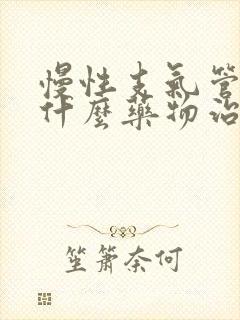 慢性支氣管
什麼藥物治
笙簫奈何